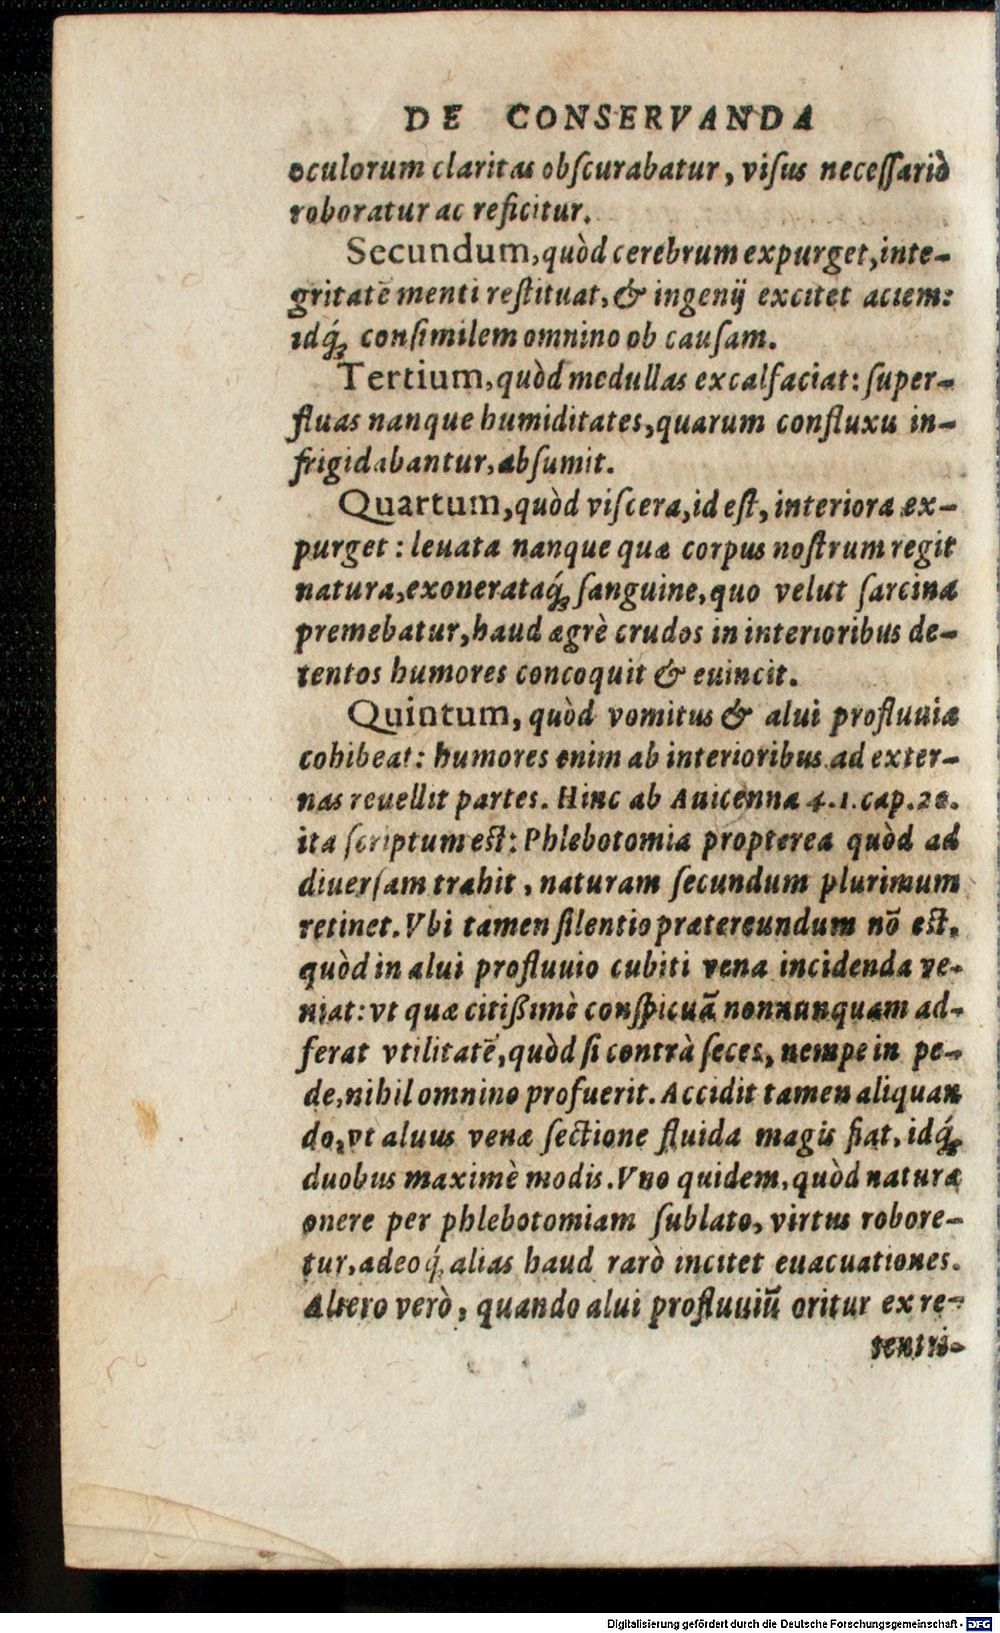 DE CONSERVANDA
oculorum claritas obſcurabatur, viſus neceſſariò
roboratur ac reficitur.
Secundum, quòd cerebrum expurget, inte-
gritatē menti reſtituat, & ingenij excitet aciem:
idq́ꝫ conſimilem omnino ob cauſam.
Tertium, quòd medullas excalfaciat: ſuper-
fluas nanque humiditates, quarum confluxu in-
frigidabantur, abſumit.
Quartum, quòd viſcera, id eſt, interiora ex-
purget: leuata nanque quæ corpus noſtrum regit
natura, exonerataq́ꝫ ſanguine, quo velut ſarcina
premebatur, haud ægrè crudos in interioribus de-
tentos humores concoquit & euincit.
Quintum, quòd vomitus & alui profluuia
cohibeat: humores enim ab interioribus ad exter-
nas reuellit partes. Hinc ab Auicenna 4.1. cap. 20.
ita ſcriptum eſt: Phlebotomia propterea quòd ad
diuerſam trahit, naturam ſecundum plurimum
retinet. Vbi tamen ſilentio prætereundum nō eſt,
quòd in alui profluuio cubiti vena incidenda ve-
niat: vt quæ citißimè conſpicuā nonnunquam ad-
ferat vtilitatē, quòd ſi contrà ſeces, nempe in pe-
de, nihil omnino profuerit. Accidit tamen aliquan
do, vt aluus venæ ſectione fluida magis fiat, idq́ꝫ
duobus maximè modis. Vno quidem, quòd naturæ
onere per phlebotomiam ſublato, virtus robore-
tur, adeoq́ꝫ alias haud rarò incitet euacuationes.
Altero verò, quando alui profluuiū oritur ex re-
tentri-
Digitalisierung gefördert durch die Deutsche Forschungsgemeinschaft - DFG